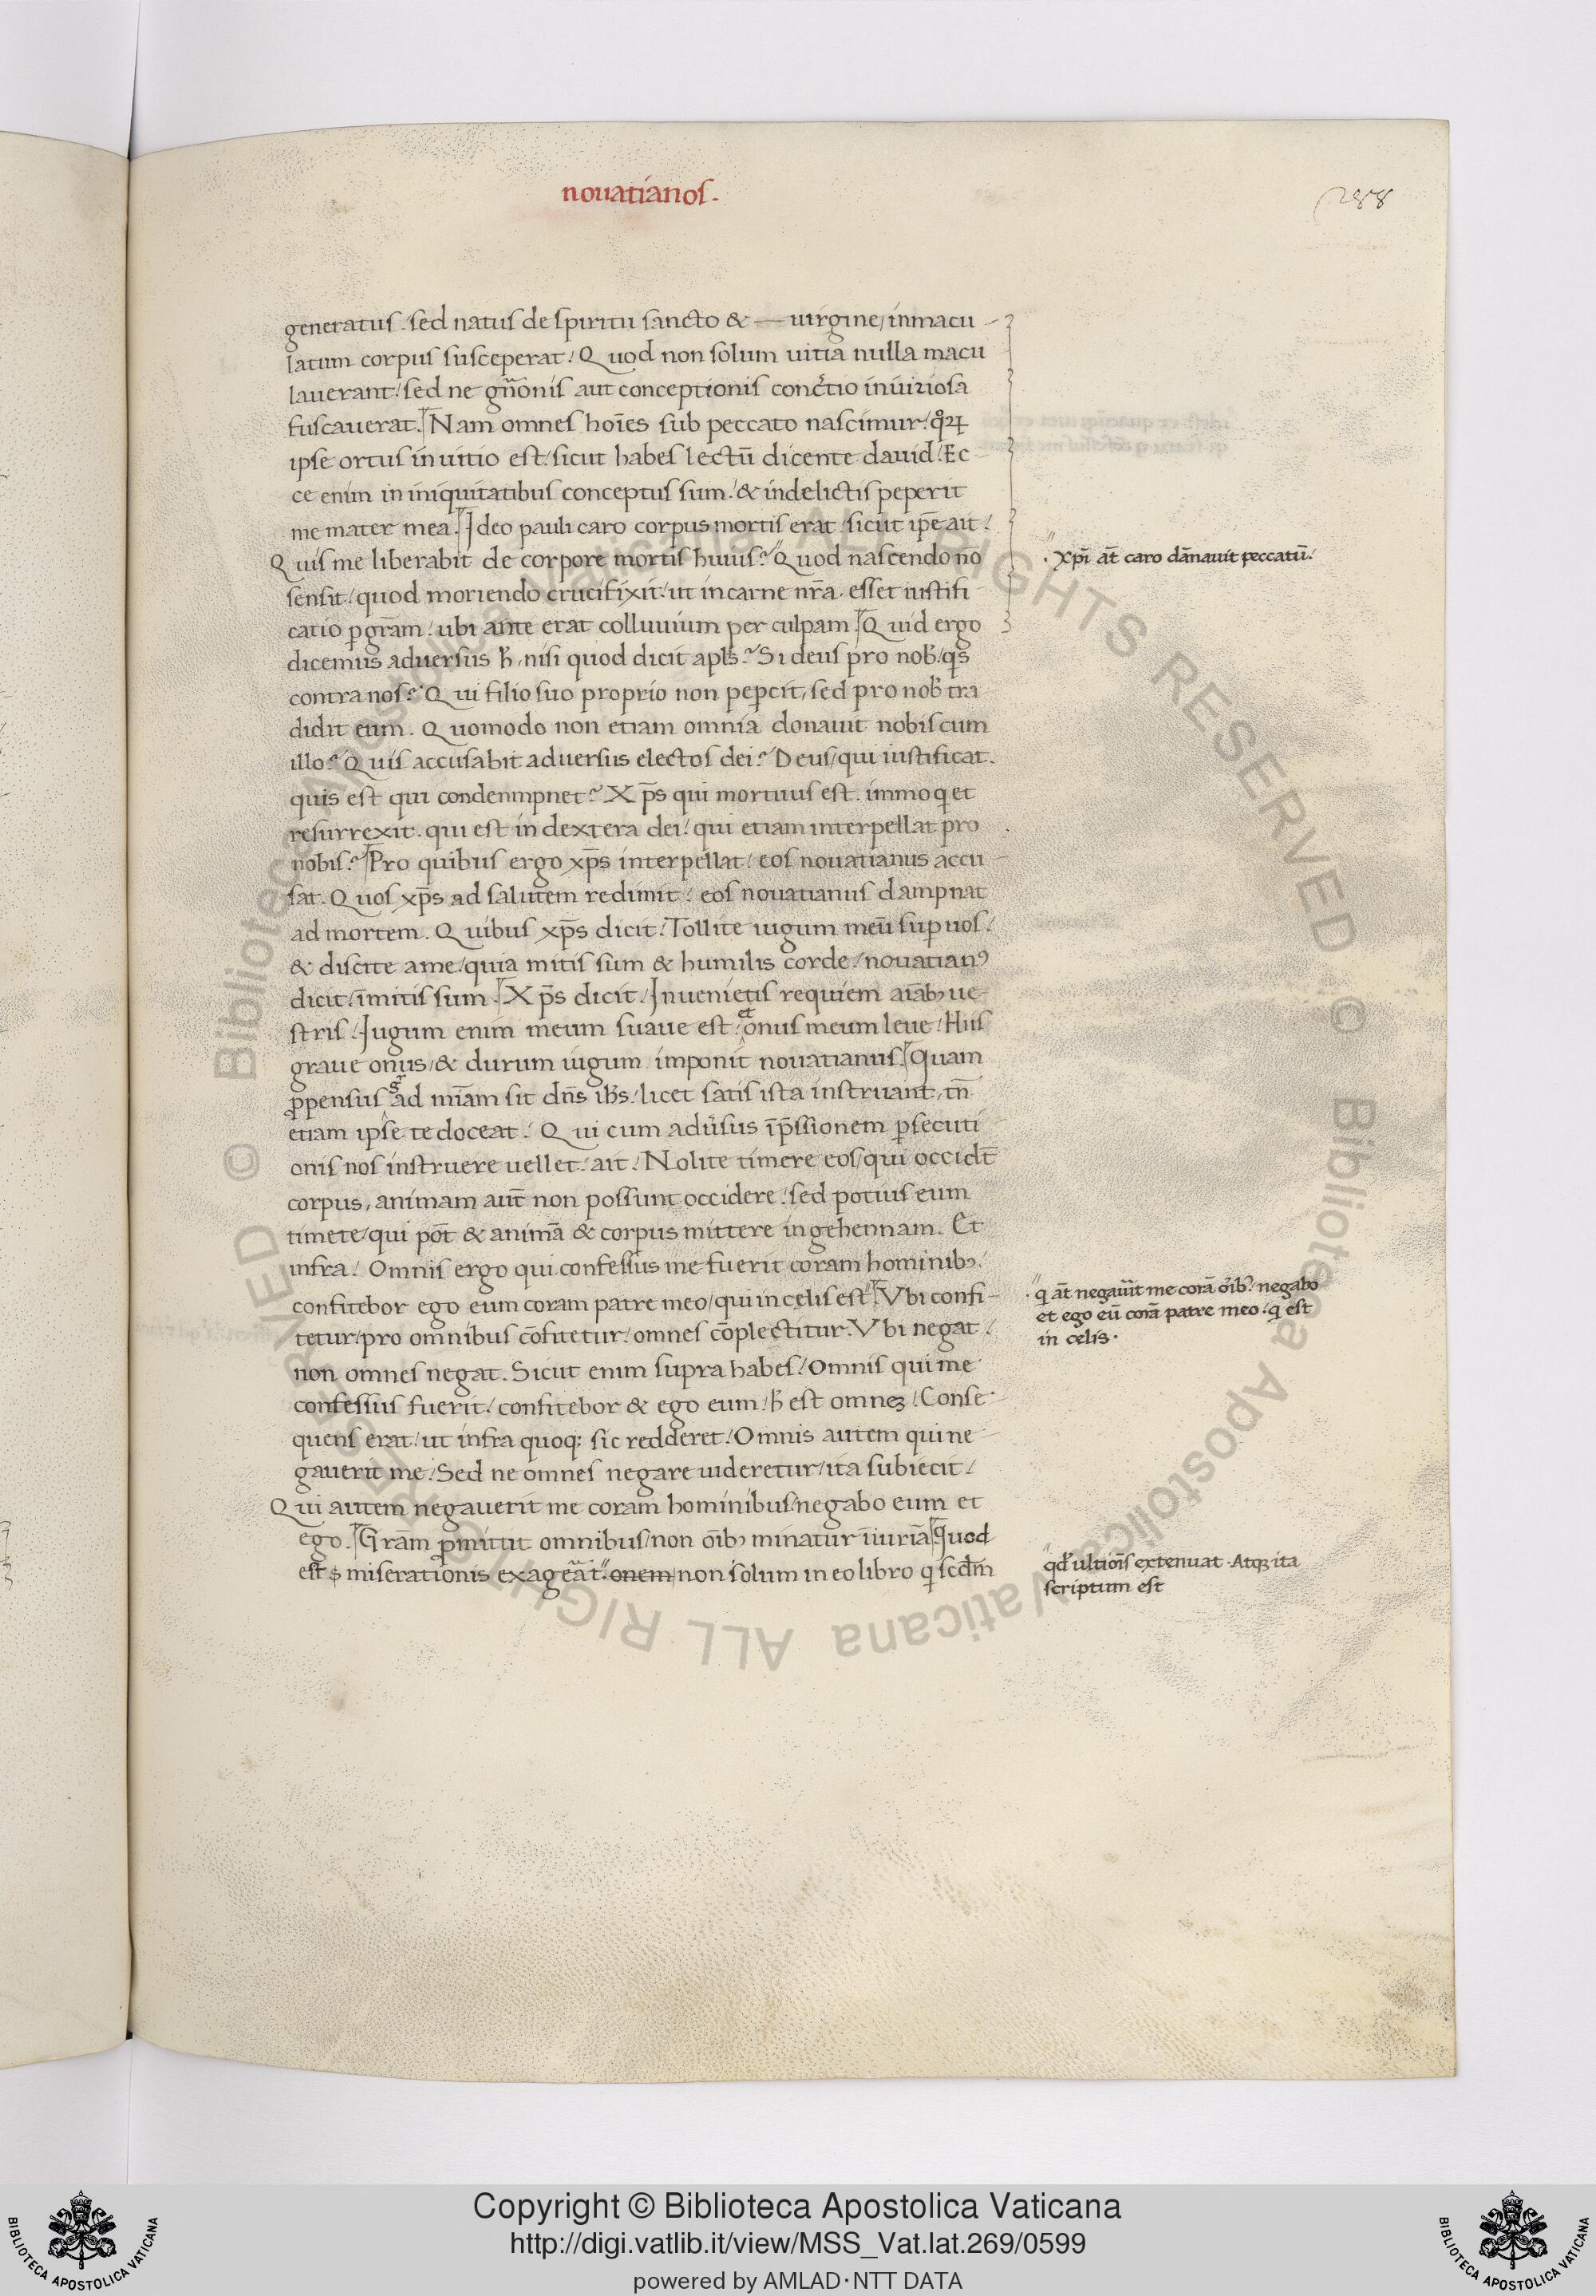 nouatianos.
288
generatus. sed natus de spiritu sancto & — uirgine/ inmacu-
latum corpus susceperat. Quod non solum uitia nulla macu
lauerant. sed ne gn̄onis aut conceptionis concretio iniuriosa
fuscauerat. Nam omnes hoīes sub peccato nascimur. quoꝝ
ipse ortus in uitio est. sicut habes lectū dicente dauid. Ec-
ce enim in iniquitatibus conceptus sum. & in delictis peperit
me mater mea. Ideo pauli caro corpus mortis erat sicut ip̄e ait.
Quis me liberabit de corpore mortis huius? Quod nascendo nō
sensit. quod moriendo crucifixit. ut in carne nr̄a esset iustifi-
catio ꝑ gr̄am. ubi ante erat colluuium per culpam. Quid ergo
dicemus aduersus h̄. nisi quod dicit apl̄s? Si deus pro nob̄. qͥs
contra nos? Qui filio suo proprio non peꝑcit, sed pro nob̄ tra-
didit eum. Quomodo non etiam omnia donauit nobis cum
illo? Quis accusabit aduersus electos dei? Deus/ qui iustificat.
quis est qui condenmpnet? Xp̄s qui mortuus est. immo q et
resurrexit. qui est in dextera dei. qui etiam interpellat pro
nobis? Pro quibus ergo xp̄s interpellat/ eos nouatianus accu-
sat. Quos xp̄s ad salutem redimit. eos nouatianus dampnat
ad mortem. Quibus xp̄s dicit. Tollite iugum meū suꝑ uos.
& discite a me. quia mitis sum & humilis corde. nouatianꝰ
dicit. īmitis sum. Xp̄s dicit. Inuenietis requiem aīabꝫ ue-
stris. Iugum enim meum suaue est. et onus meum leue. Hiis
graue onus/ & durum iugum imponit nouatianus. Quam
ꝓpensus ad mīam sit dn̄s ih̄s. licet satis ista instruant, tn̄
etiam ipse te doceat. Qui cum adu͛sus īp̄ssionem ꝑsecuti
onis nos instruere uellet. ait. Nolite timere eos/ qui occidt̄
corpus, animam aut̄ non possunt occidere. sed potius eum
timete/ qui pōt & animā & corpus mittere in gehennam. Et
infra. Omnis ergo qui confessus me fuerit coram hominibꝫ.
confitebor ego eum coram patre meo/ qui in cęlis est. Vbi confi-
tetur/ pro omnibus cōfitetur. omnes cōplectitur. Vbi negat.
non omnes negat. Sicut enim supra habes. Omnis qui me
confessus fuerit. confitebor & ego eum. h̄ est omneꝫ. Conse-
quens erat. ut infra quoqꝫ sic redderet. Omnis autem qui ne-
gauerit me. Sed ne omnes negare uideretur/ ita subiecit.
Qui autem negauerit me coram hominibus. negabo eum et
ego. Gr̄am ꝑmittit omnibus/ non oībꝫ minatur īiuriā. Quod
est miserationis exageāt. onem/ non solum in eo libro q scdm̄
. Xp̄i at̄ caro dānauit peccatū.
. q at̄ negau͛it me corā oībꝫ. negabo
et ego eū corā patre meo. q est
in celis.
qd̄ ultiōis extenuat. Atqꝫ ita
scriptum est
Copyright © Biblioteca Apostolica Vaticana
http://digi.vatlib.it/view/MSS_Vat.lat.269/0599
powered by AMLAD·NTT DATA